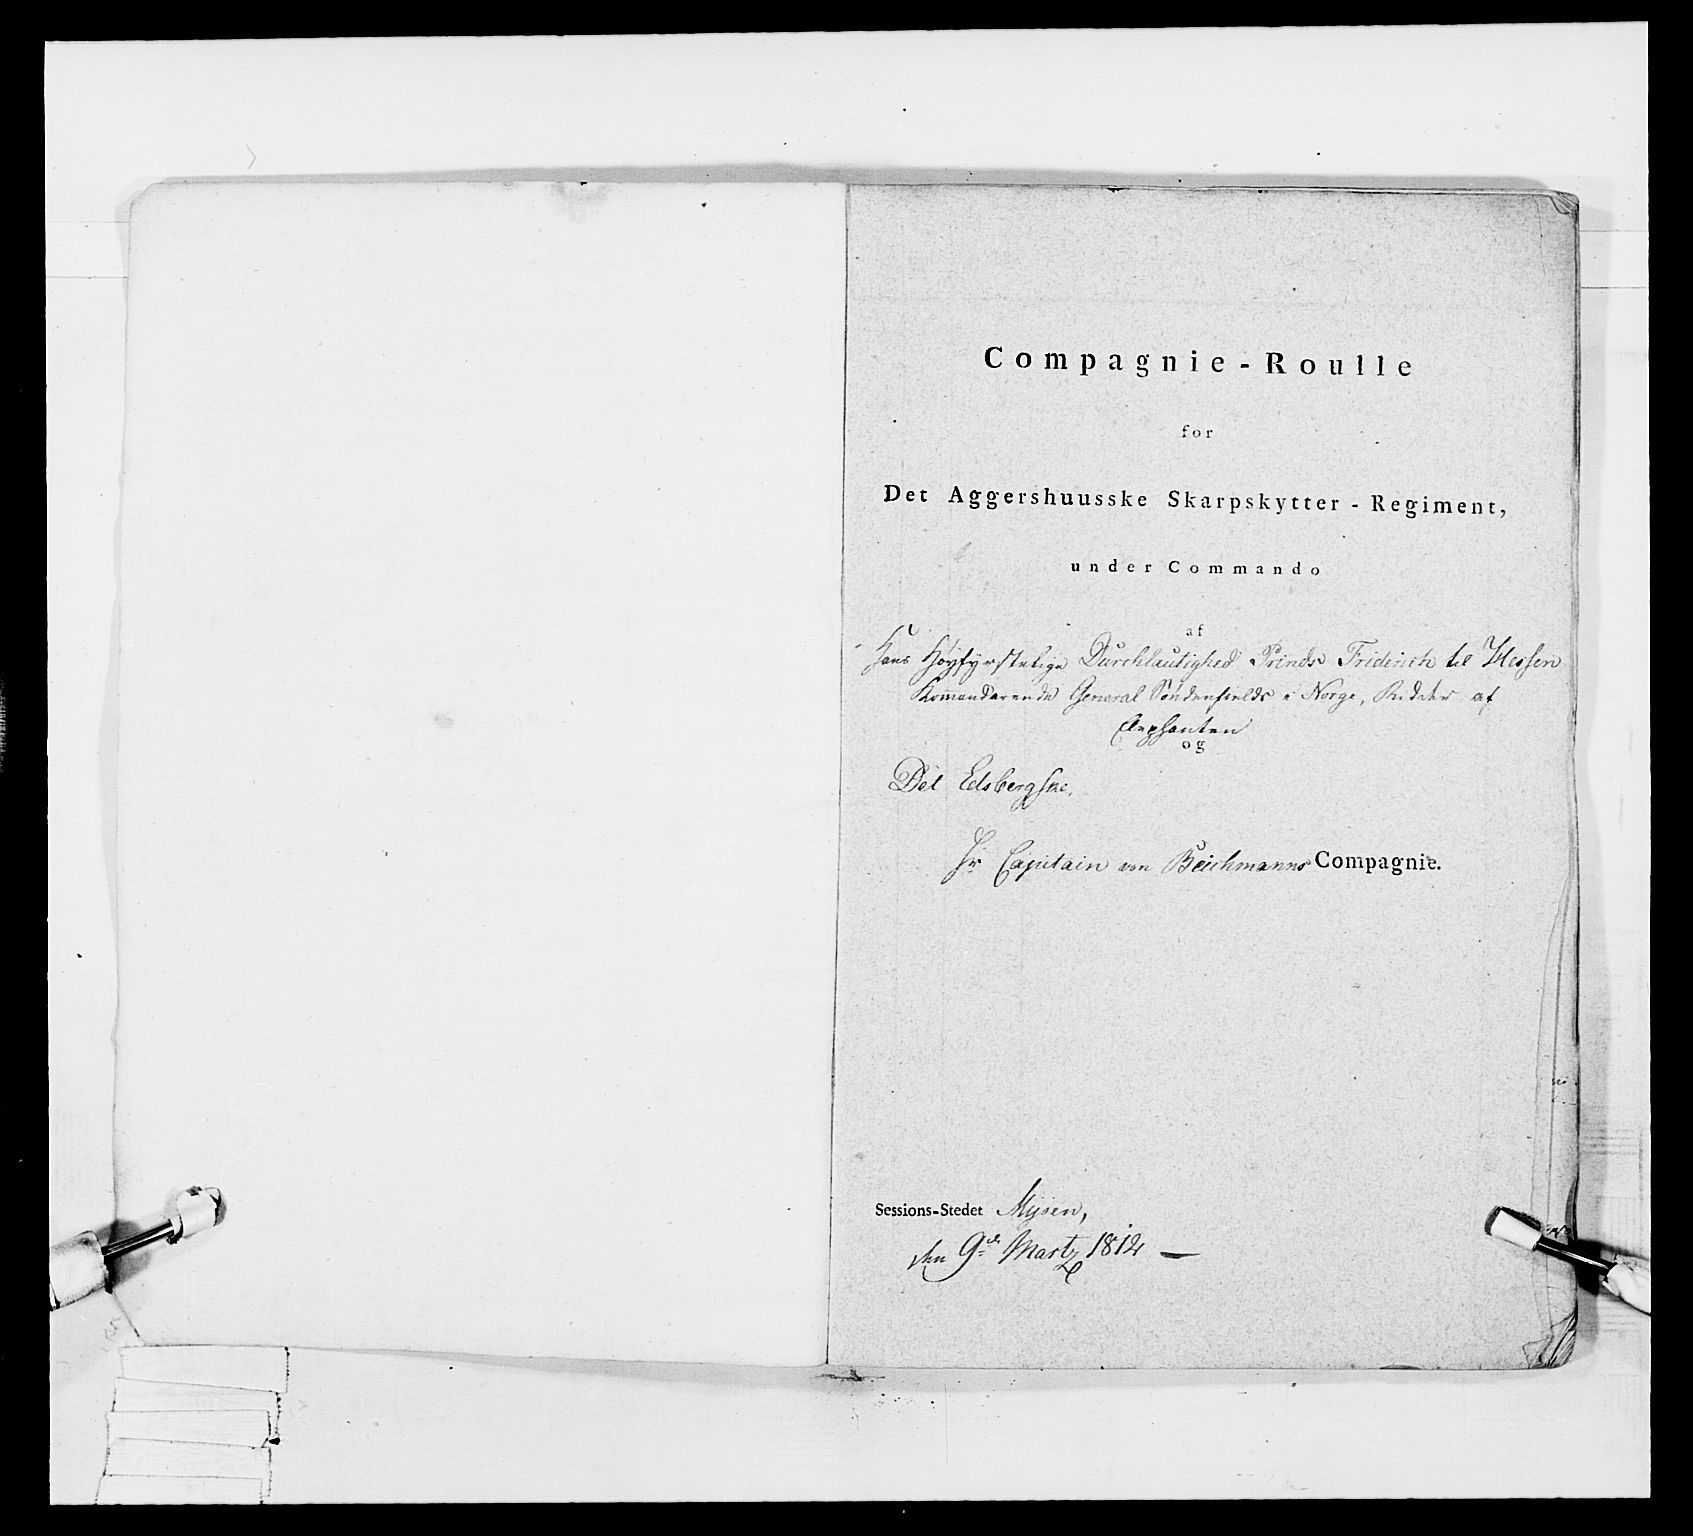 Compagnie-Roulle
for
Det Aggershuusske Skarpskytter-Regiment,
under Commando
af
Hans Høyfyrstelige Durchlautighed Prinds Friderich til Hessen
Kommanderende General Søndenfields i Norge, Ridder af
Elephanten
og
Det Edsbergske,
Hr Capitain von Beichmanns Compagnie.
Sessions-Stedet Mysen,
den 9de Martz 1812 —